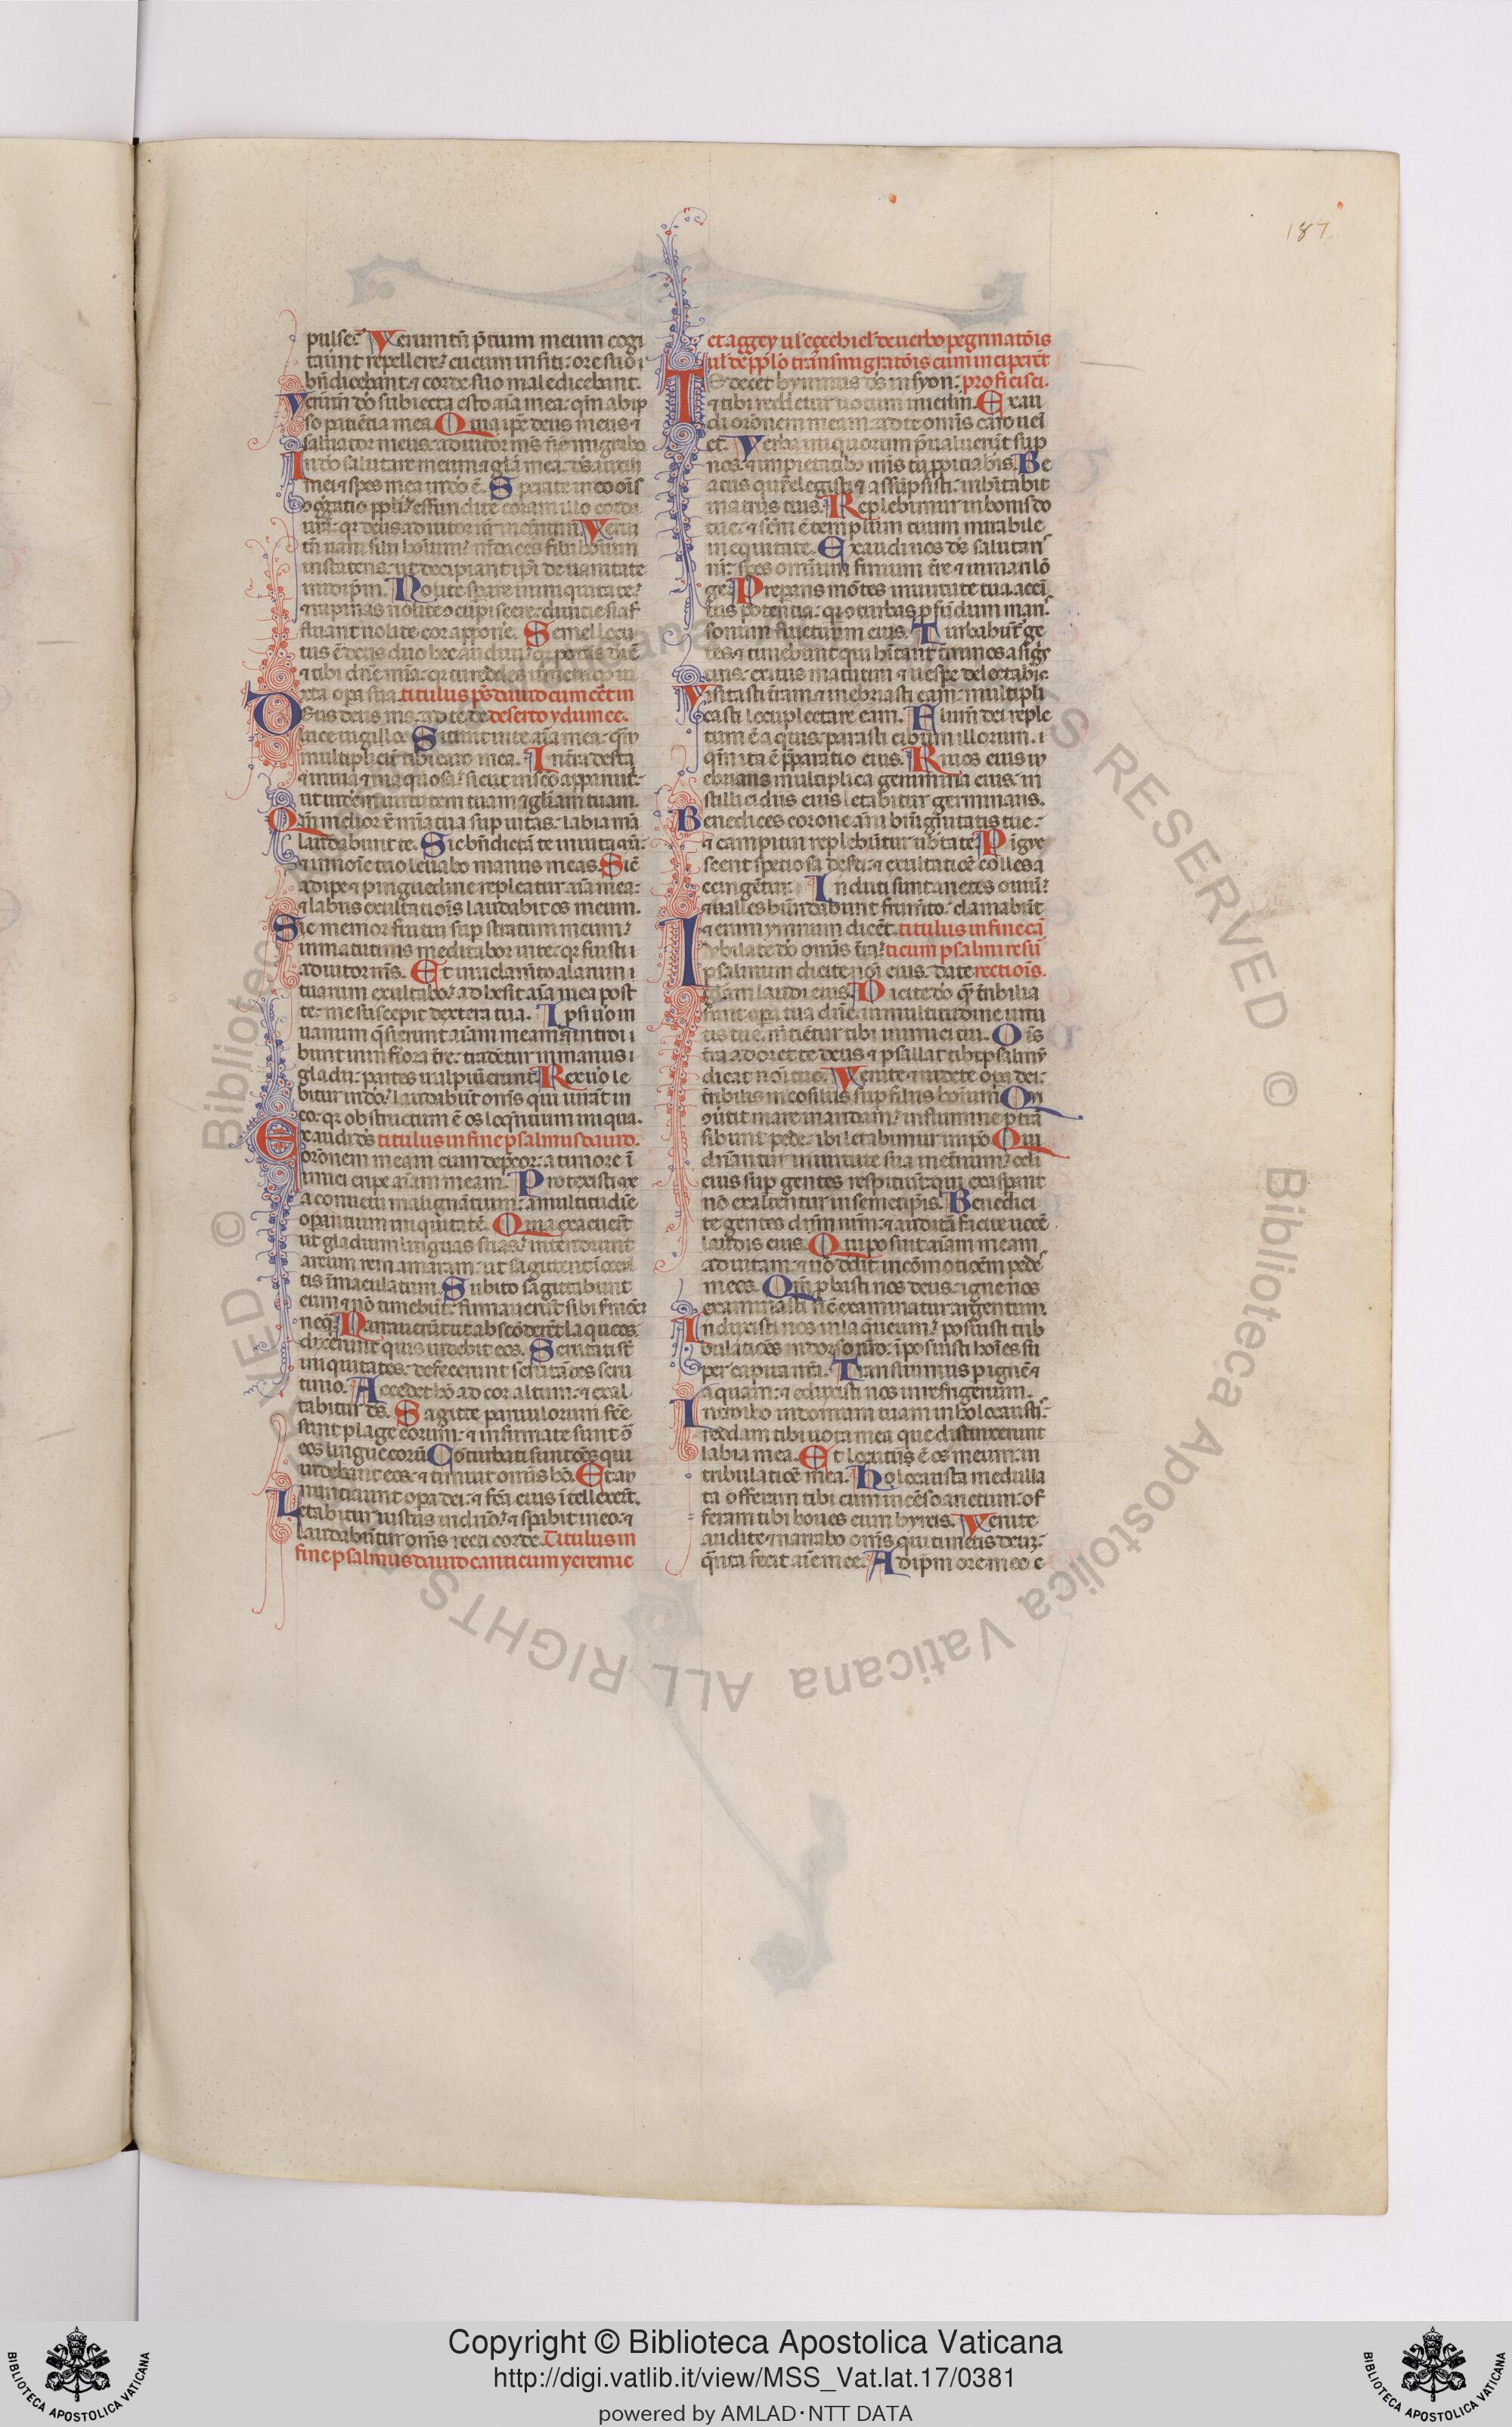 187
pulse?. Verumtñ p̃tium meum cogi
tau̾unt repellere? cucurri in siti: ore suo i
bñdicebant ⁊ corde suo maledicebant.
Verum̃ do subiecta esto aĩa mea: qm̃ ab ip
so patiẽtia mea. Quia ip̃e deus meus ⁊
saluator meus: adiutor m̃s nõ migrabo
In dõ salutare meum ⁊ glã mea: ds̃ auxili
mei ⁊ spes mea in dõ ẽ. Sperate in eo oĩs
ogg̃atio pp̃li? effundite coram illo corda
ur̃a: qr deus adiutor nr̃ in et̃num. Verũ
tñ uani filii hoĩum? mẽdaces filii hoĩum
in stateris: ut decipiant ip̃i de uanitate
in idip̃m. Nolite sp̃are in iniquitate?
⁊ rapinas nolite ocupiscere: diuitie si af
fluant nolite cor appone. Semel locu
tus ẽ deus duo hec audiui? qr potas dei ẽ
⁊ tibi dñe mĩa: qr tu reddes unicuiq̃ iu
xta opa sua. titulus ps̃ dauid cum eẽt in
Deus deus ms̃: ad te de deserto ydumee.
luce uigilo. Sitiuit in te aĩa mea: qm̃
multipliciť tibi caro mea. In tr̃a deserta
⁊ inuia ⁊ inaquosa: sicut in sc̃o apparui t̃:
ut uidẽm uirtutem tuam ⁊ glĩam tuam.
Qm̃ melior ẽ mĩa tua sup uitas: labia mã
laudabunt te. Sic bñdicã te in uita m̃:
⁊ in noĩe tuo leuabo manus meas. Sic̃
adipe ⁊ pinguedine repleatur aĩa mea:
⁊ labiis exultatiõis laudabit os meum.
Sic memor fui tui sup stratum meum?
in matutinis meditabor in te: qr fuisti i
adiutor m̃s. Et in uelam̃to alarum i
tuarum exultabo? adhesit aĩa mea post
te: me suscepit dextera tua. Ipsi uo in
uanum q̃sierunt aĩam meam: introi i
bunt in inf̃iora tr̃e: tradẽtur in manus i
gladii: partes uulpiũ erunt. Rex uo le
bitur in dõ? laudabũt om̃s qui iurãt in
eo: qr obstructum ẽ os loq̃ntium iniqua.
Exaudi ds̃ titulus in fine psalmus dauid.
orõnem meam cum dep̃cor: a timore ĩ
imici eripe aĩam meam. Protexisti me
a conuentu malignãtium: a multitudĩe
opantium iniquitatẽ. Quia exacuer̃t
ut gladium linguas suas? intenderunt
arcum rem amaram: ut sagittent ĩ occul
tis ĩmaculatum. Subito sagittabunt
eum ⁊ nõ timebũt: firmauerũt sibi s̃monẽ
neq̃. Narrauerũt ut abscõderẽt laqueos:
dixerunt quis uidebit eos. Scrutati st̃
iniquitates: defecerunt scrutãtes scru
tinio. Accedet hõ ad cor altum: ⁊ exal
tabitur ds̃. Sagitte paruulorum fc̃e
sunt plage eorum: ⁊ infirmate sunt c̃
eos lingue eorũ. Cõturbati sunt oẽs qui
uidebant eos: ⁊ timuit omĩs hõ. Et an
nuntiau̾unt opa dei: ⁊ fc̃a eius ĩtellexer̃t.
Letabitur iustus in dñõ? ⁊ sp̃abit in eo: ⁊
laudabũtur om̃s recti corde. Titulus in
fine psalmus dauid canticum yeremie
et aggey ul̃ ezechiel̃ de uerbo pegrinatõis
ul̃ de pp̃lo trãsmigratõis cum inciperẽt
Te decet hymnus ds̃ in syon: proficisci.
⁊ tibi reddetur uotum in ierl̃m. Exau
di orõnem meam: ad te omĩs caro uei
et. Verba iniquorum p̃ualuerũt sup
nos: ⁊ impietatibꝰ nr̃is tu ppitiabis. Be
atus que elegisti ⁊ assũpsisti: inhitabit
in atriis tuis. Replebimur in bonis do
tue: ⁊ sc̃m ẽ templum tuum mirabile
in equitate. Exaudi nos ds̃ salutar̃
nr̃: spes omĩum finium tr̃e ⁊ in mari lõ
ge. Preparãs mõtes in uirtute tua acci
tus potentia: qr oturbas pfũdum mar̃
sonum fluctuum eius. Turbabũt̃ ge
tes ⁊ timebunt qui hĩtant tr̃minos a sig̃
tuis: exitus matutini ⁊ uesp̃e delectabis.
Visitasti tr̃am ⁊ inebriasti eam: multipli
casti locupletare eam. Flum̃ dei reple
tum ẽ aquis: parasti cibum illorum. i
qm̃ ita ẽ pp̃aratio eius. Riuos eius in
ebrians multiplica genimĩa eius: in
stillicidiis eius letabitur germinans.
Benedices corone ãni bñignitatis tue:
⁊ campi tui replebũtur ubtate. Pĩgue
scent spetiosa des̃ti: ⁊ exultatiõe colles a
ccingẽtur. Induti sunt arietes ouiũ?
⁊ ualles hũdabunt frum̃to: clamabũt
⁊ enim ymnum dicẽt. titulus in fine cã
Iubilate dõ omĩs tr̃a: ticum psalmi resũ
psalmum dicite noĩ eius: date rectiõis.
glĩam laudi eius. Dicite dõ q̃ tr̃ibilia
sunt opa tua dñe: in multitudine uirtu
tis tue mẽtiẽtur tibi inimici tui. Oĩs
tr̃a adoret te deus ⁊ psallat tibi: psalmũ
dicat noĩ tuo. Venite ⁊ uidete opa dei:
tr̃ibilis in cosiliis sup filios hoĩum. Qui
ouertit mare in aridam: in flumine ptrã
sibunt pede: ibi letabimur in ipõ. Qui
dñatur in uirtute sua in et̃num: oculi
eius sup gentes respiciũt: qui exaspant
nõ exaltentur in semetip̃is. Benedici
te gentes dm̃ nr̃m: ⁊ auditã facite uocẽ
laudis eius. Qui posuit aĩam meam
ad uitam: ⁊ nõ dedit in cõmotiõem pedes
meos. Qm̃ pbasti nos deus: igne nos
examinasti sic̃ examinatur argentum.
Induxisti nos in laqueum? posuisti trib
bulatiões in dorso nr̃o: ĩposuisti hoĩes su
per capita nr̃a. Transiuimus p ignẽ ⁊
aquam: ⁊ eduxisti nos in refrigerium.
Introibo in domum tuam in holocaustis:
reddam tibi uota mea que distinxerunt
labia mea. Et locutus ẽ os meum: in
tribulatiõe mea. Holocausta medulla
ta offeram tibi cum incẽso arietum: of
feram tibi boues cum hyrcis. Venite
audite ⁊ narrabo om̃s qui timetis deuz:
q̃nta fecit aĩe mee. Ad ip̃m ore meo c
© Biblioteca Apostolica Vaticana ALL RIGHTS RESERVED
Copyright © Biblioteca Apostolica Vaticana
http://digi.vatlib.it/view/MSS_Vat.lat.17/0381
powered by AMLAD·NTT DATA
BIBLIOTECA APOSTOLICA VATICANA
BIBLIOTECA APOSTOLICA VATICANA